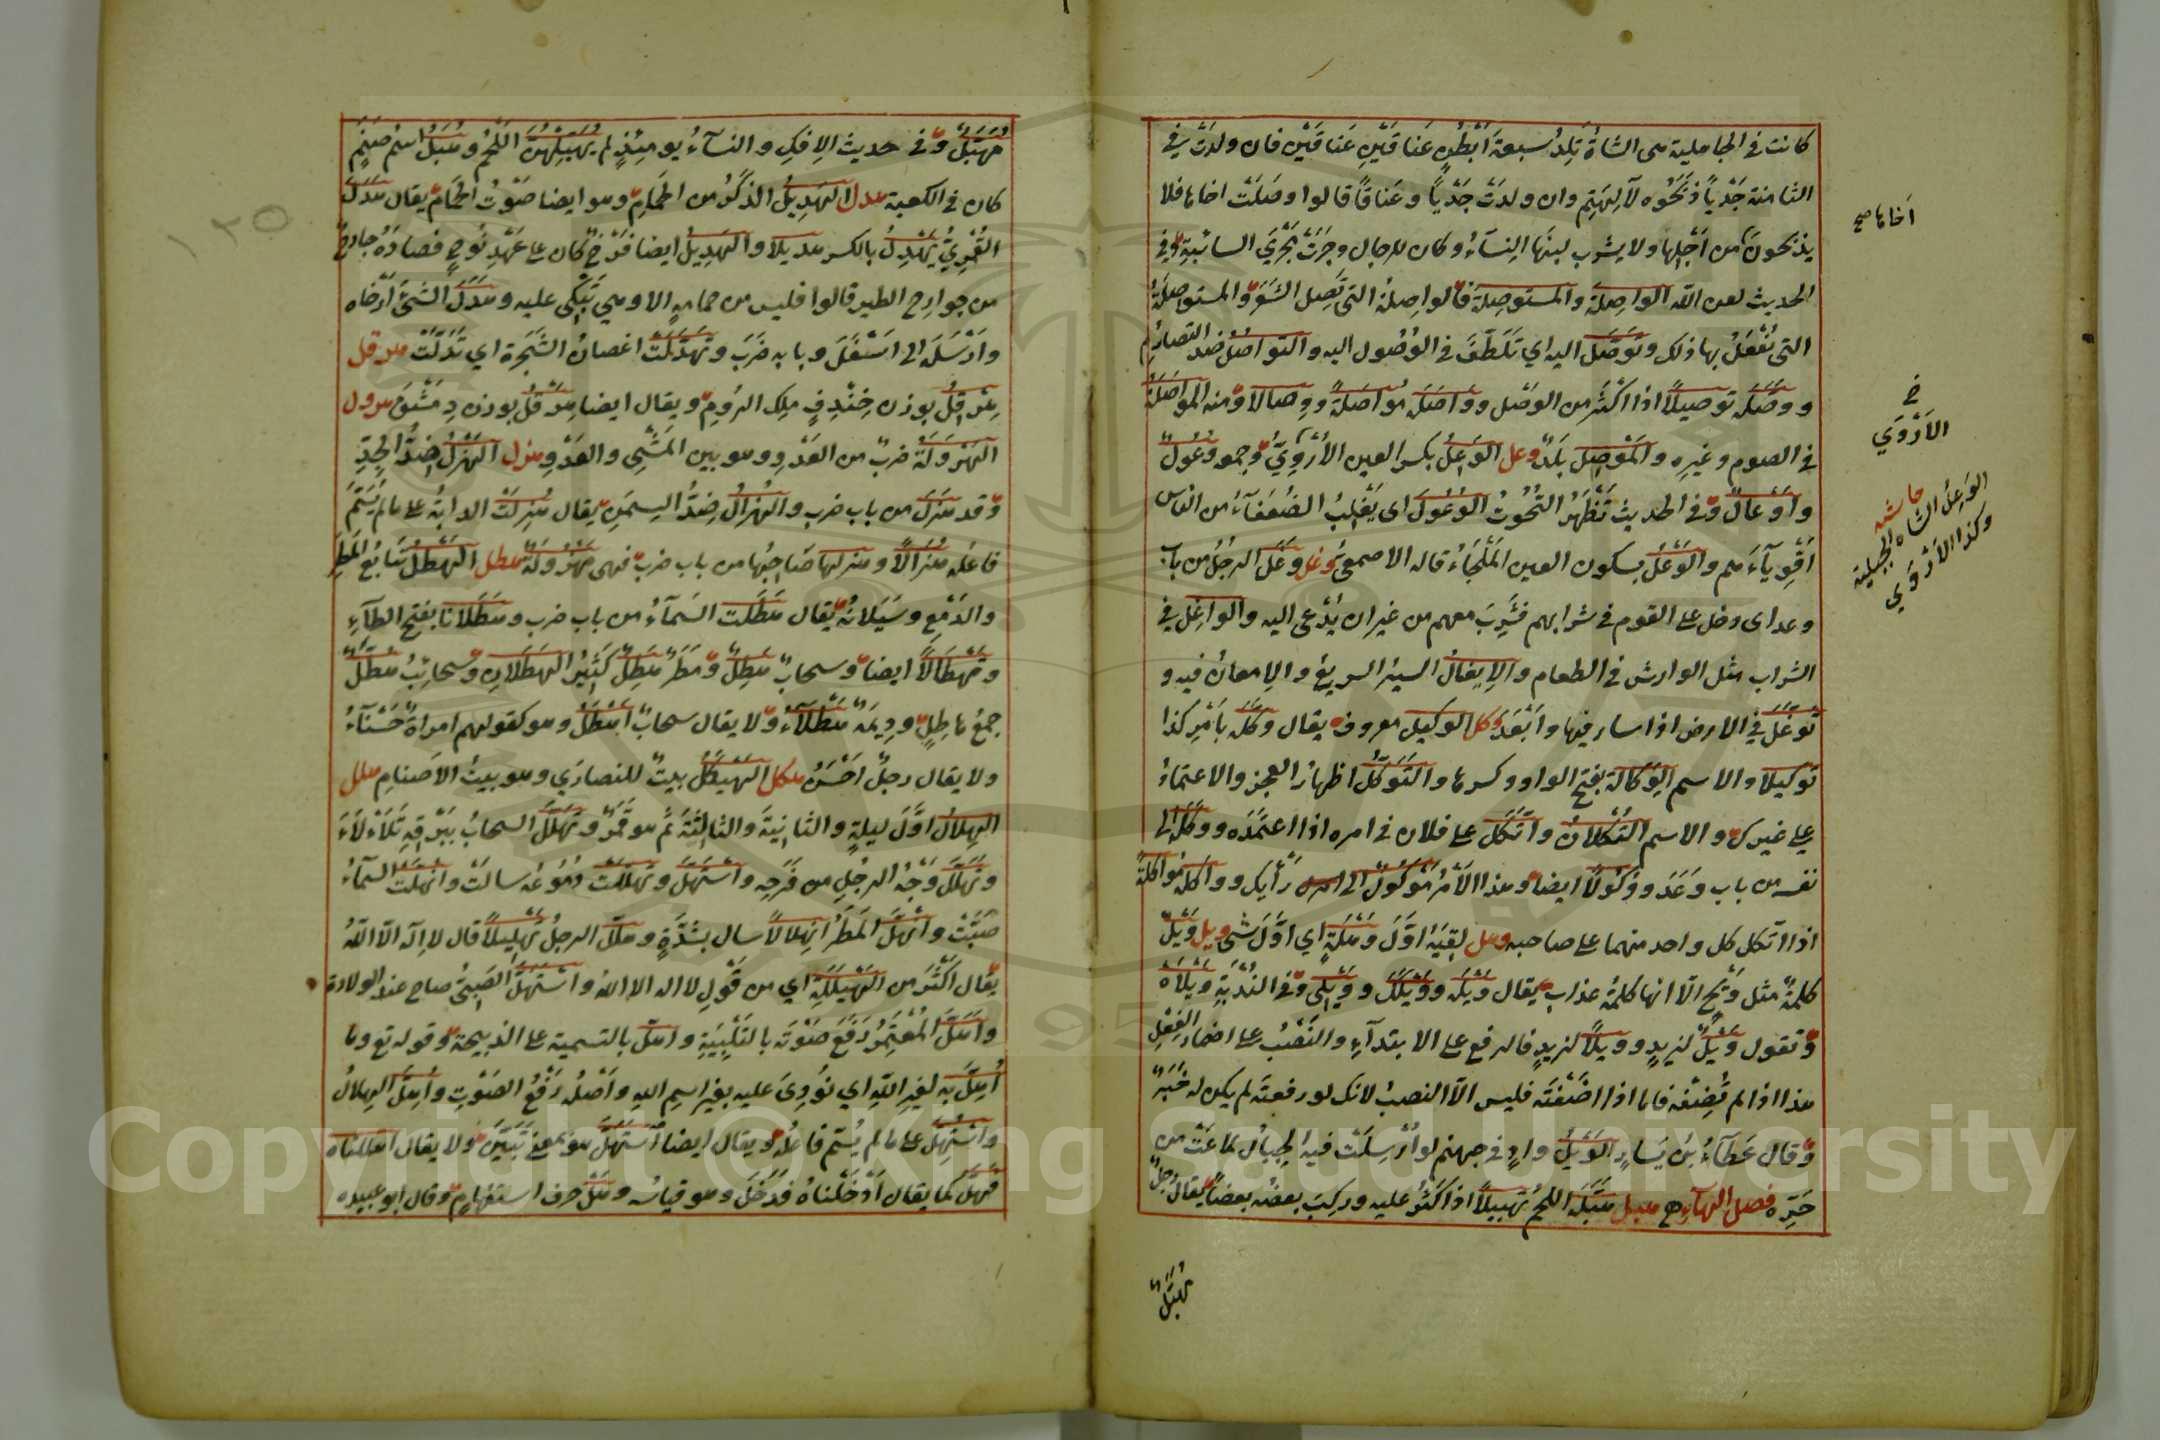 كانت في الجاهلية هي الشاة تَلِدُ سبعة اَبْطُنٍ عَنَاقَيْنِ عَنَاقَيْنِ فان ولدَتْ في
الثامنة جَدْياً ذَبَحُوه لآلِهَتِهِم وان ولدَتْ جَدْياً وعَنَاقاً قالوا وصَلَتْ اخاها فلا
يذبحونَ من اَجْلِها ولا يشرب لبنَها النِسَآءُ وكان للرجال وجَرَتْ مَجْرَي السائبةِ وفي
الحديث لعن الله الواصِلَة والمستوصِلة فالواصِلةُ التي تَصِل الشَعَر والمستوصِلَةُ
التي يُفْعَلُ بها ذلك وتَوَصَّلَ اليه اي تَلَطَّفَ في الوُصُول اليه والتواصُلُ ضد التصارُمِ
ووصَّلَه توصيلاً اذا اكْثَرَ من الوَصْل وواصَلَه مُواصَلَةً ووِصَالاً ومنه المواصَلَةُ
في الصوم وغيرِه والمَوْصِل بلَدٌ وعل الوَعِلُ بكسر العين الأرْوِيُّ وجمعه وُعُولٌ
واَوْعَالٌ وفي الحديث تَظْهَرُ التُحُوتُ الوُعُولَ اى يَغْلِبُ الضُعَفَآءُ من الناس
اَقْوِيآءَهم والوَعْلُ بسكون العين المَلْجَاءُ قاله الاصمعي وغل وَغَلَ الرجُلُ من باب
وعد اى دخل على القوم في شرابهم فشَرِبَ معهم من غير ان يُدْعى اليه والواغِلُ في
الشراب مثل الوارش في الطعام والاِيغالُ السيرُ السريعُ والاِمعانُ فيه و
تَوَغَّلَ في الارض اذا سار فيها واَبْعَدَ وكل الوكيل معروف يقال وكَّلَه باَمْرِ كذا
توكيلا والاسم الوَكالة بفتح الواو وكسرها والتَوَكُّلُ اظهارُ العجز والاعتمادُ
على غيرك والاسم التُكْلانُ واتَّكَل على فلان في امره اذا اعتمَدَه ووكَلَه الى
نفسه من باب وَعَدَ ووُكُولاً ايضا وهذا الأمْرُ مَوْكُولٌ الى رَأيك وواكَلَه مُواكلَةً
اذا اتّكل كل واحد منهما على صاحبه وهل لقِيَهُ اوَّلَ وهْلَةٍ اي اوَّلَ شئ ويل وَيْلٌ
كلمةٌ مثل وَيْحٍ الاّ انها كلمةُ عذاب يقال وَيْلَه ووَيْلَكَ ووَيْلِي وفي النُدْبَةِ وَيْلاَهْ
وتقول وَيْلٌ لزيدٍ ووَيْلاً لزيدٍ فالرفع على الابتدآءِ والنَصْبُ على اضمار الفِعْلِ
هذا اذا لم تُضِفْه فاما اذا اضَفْتَه فليس الاّ النصبُ لانك لو رفعتَه لم يكن له خَبَرٌ
وقال عَطآءُ بنُ يَسَارٍ الوَيْلُ وادٍ في جهنم لو اُرْسِلَتْ فيه الجِبالُ لماعَتْ من
حَرِّه فصل الهآءِ هبل هَبَّلَه اللحمُ تَهْبيلاً اذا كَثُرَ عليه وركِبَ بعضُه بعضاً يقالُ رجلٌ
مُهَبَّلٌ
اَخاها صح
خ
الأرْوَي
حاشيه
الوَعِلُ الشاة الجبلية
وكذا الأرْوَي
١٢٥
مُهَبَّلٌ وفي حديث الاِفكِ والنسآءُ يومئذٍ لم يُهَبِّلْهُنَّ اللَحْمُ وهُبَلُ اسْمُ صَنَمٍ
كان في الكعبة هدل الهَدِيلُ الذَكَرُ من الحمامِ وهو ايضا صَوْتُ الحَمامِ يقال هَدَلَ
القُمْرِيُّ يَهْدِلُ بالكسر هديلا والهدِيلُ ايضا فَرْخٌ كان على عَهْدِ نُوحٍ فصادَهُ جارِحٌ
من جوارح الطير قالوا فليس من حمامةٍ الا وهي تَبْكي عليه وهَدَلَ الشَئَ اَرْخاه
واَرْسَلَه الى اسْفَلَ وبابه ضَرَبَ وتَهَدَّلَتْ اغصانُ الشَجَرة اي تَدَلَّتْ هرقل
هِرَقْلُ بوزن خِنْدِفٍ ملِك الرُومِ ويقال ايضا هِرَقْلُ بوزن دِمَشْقَ هرول
الهَرْوَلَةُ ضربٌ من العَدْوِ وهو بين المَشْيِ والعَدْوِ هزل الهَزْلُ ضِدُّ الجِدِّ
وقد هَزَلَ من باب ضرب والهُزالُ ضِدُّ السِمَنِ يقال هُزِلَتْ الدابةُ على ما لم يُسَمَّ
فاعلُه هُزالاً وهزلها صَاحِبُها من باب ضرب فهى مَهْزُولَةٌ هطل الهَطْلُ تتابُعُ المَطَرِ
والدَمْعِ وسَيَلانُه يقال هَطَلَت السَمآءُ من باب ضرب وهَطَلانا بفتح الطآءِ
وتَهْطَالاً ايضا وسحابٌ هَطِلٌ ومَطَرٌ هَطِلٌ كَثِيرُ الهطَلانِ وسحائِبُ هُطَّلٌ
جمعُ هاطِلٍ ودِيمَةٌ هَطْلآءُ ولا يقال سحابٌ اَهْطَلُ وهو كقولهم امراةٌ حَسْنآءُ
ولا يقال رجلٌ اَحْسَنُ هكل الهَيْكَلُ بيتٌ للنصارَي وهو بيتُ الاَصنامِ هلل
الهِلالُ اوَّلَ ليلةٍ والثانِيَةَ والثالِثَةَ ثم هو قَمَرٌ وتَهَلَّلَ السحابُ ببَرْقِه تَلَأْلَأَ
وتَهَلَّلَ وَجْهُ الرجُلِ من فَرَحِه واسْتَهَلَّ وتَهَلَّلَتْ دُمُوعُه سالَتْ وانْهَلَّت السمآءُ
صَبَّتْ وانْهَلَّ المَطَرُ انْهِلالاً سال بشدَّةٍ وهلَّلَ الرجلُ تَهْلِيلاً قال لا اِله الاّ اللهُ
يقال اَكْثَرَ من الهَيْلَلَةِ اي من قَوْلِ لا اله الا الله واسْتَهَلَّ الصَبِيُّ صاح عند الولادة
واَهَلَّ المُعْتَمِرُ رَفَعَ صَوْتَه بالتَلْبِيَةِ واهلَّ بالتسمية على الذبيحة وقوله تع وما
اُهِلَّ به لغيرِ اللهِ اي نُودِيَ عليه بغيرِ اسم اللهِ واَصْلُه رَفْعُ الصَوْتِ واُهِلَّ الهِلالُ
واسْتُهِلَّ على ما لم يُسَمّ فاعلُه ويقال ايضا اسْتَهَلَّ هو بمعنى تَبَيَّنَ ولا يقال اهللناه
فهَلَّ كما يقال اَدْخَلْناهُ فدَخَلَ وهو قياسُه وهَلْ حرف استفهامٍ وقال ابو عبيده
Copyright © King Saud University